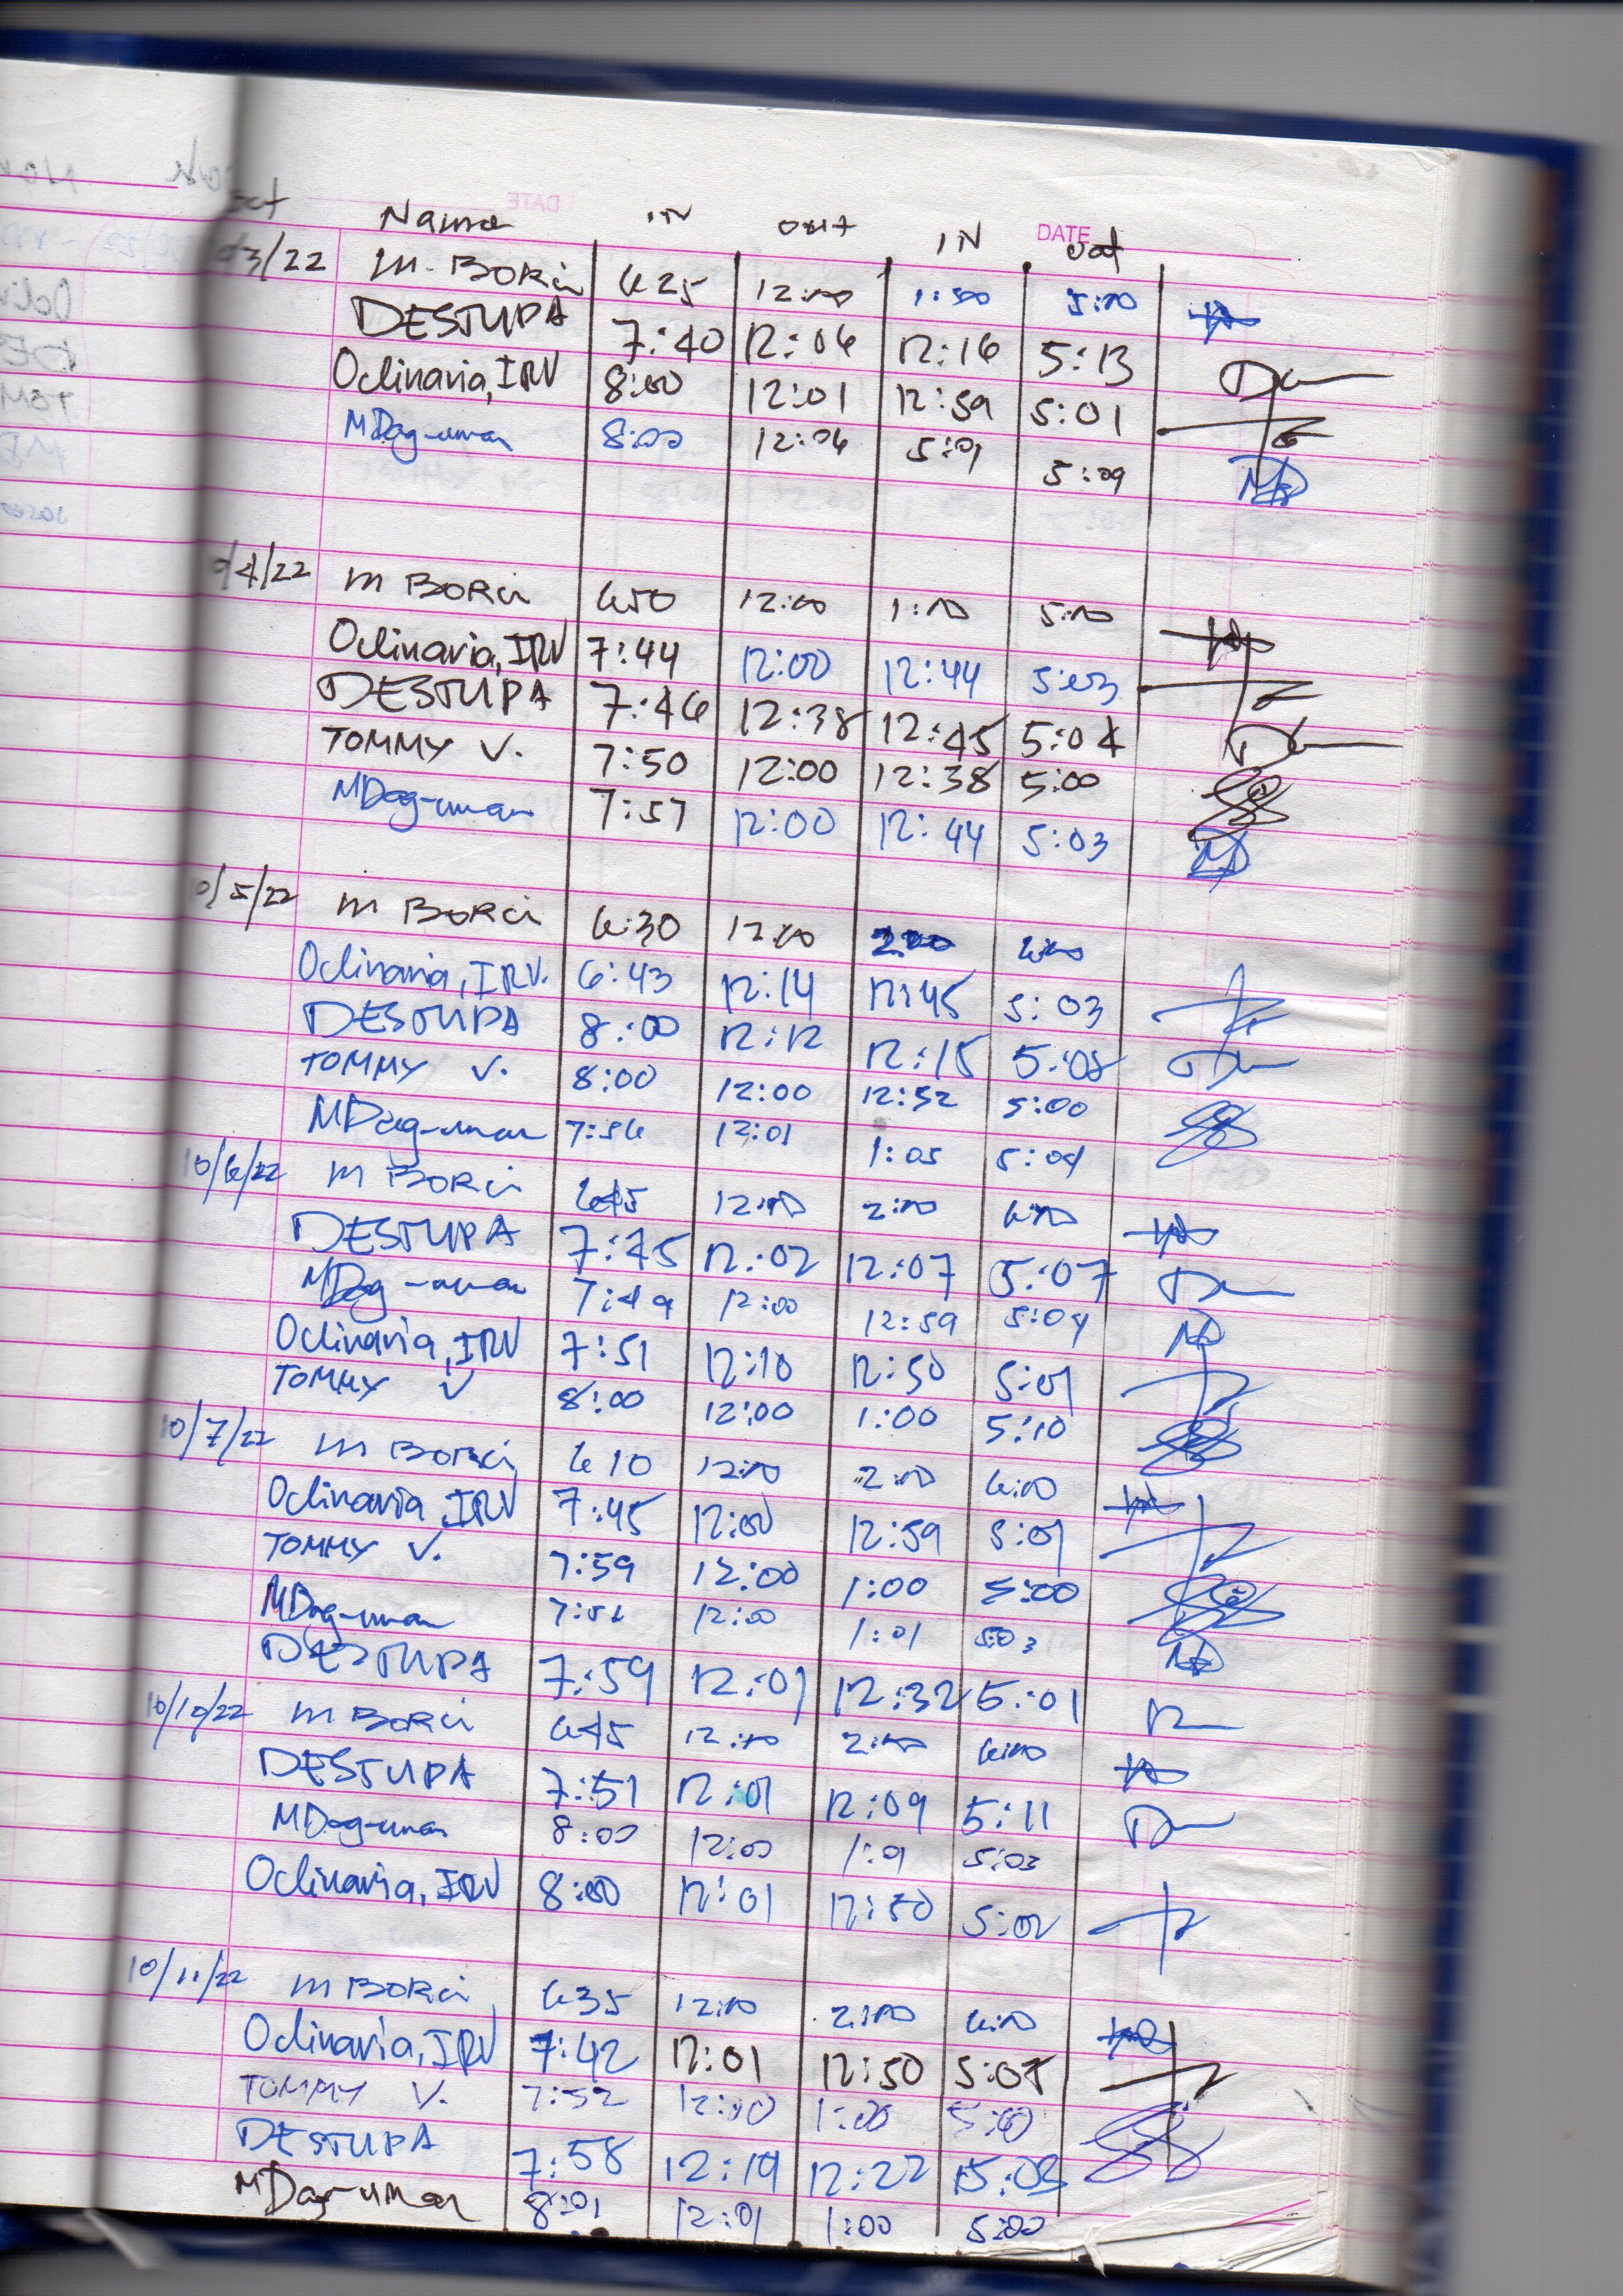 Name IN out IN out
DATE
10/3/22 M. BORCi 6:25 12:00 1:00 5:00
DESTUPA 7:40 12:06 12:16 5:13
Oclinaria, IRV 8:00 12:01 12:59 5:01
MDag-uman 8:00 12:06 5:09
10/4/22 M BORCi 650 12:00 1:00 5:00
Oclinaria, IRV 7:44 12:00 12:44 5:03
DESTUPA 7:46 12:38 12:45 5:04
TOMMY V. 7:50 12:00 12:38 5:00
MDag-uman 7:57 12:00 12:44 5:03
10/5/22 M BORCi 6:30 12:00 2:00 6:00
Oclinaria, IRV. 6:43 12:14 12:45 5:03
DESTUPA 8:00 12:12 12:15 5:08
TOMMY V. 8:00 12:00 12:52 5:00
MDag-uman 7:56 12:01 1:05 5:04
10/6/22 M BORCi 645 12:00 2:00 6:00
DESTUPA 7:45 12:02 12:07 5:07
MDag-uman 7:49 12:00 12:59 5:04
Oclinaria, IRV 7:51 12:10 12:50 5:01
TOMMY V 8:00 12:00 1:00 5:10
10/7/22 M BORCi 610 12:00 2:00 6:00
Oclinaria, IRV 7:45 12:00 12:59 5:01
TOMMY V. 7:59 12:00 1:00 5:00
MDag-uman 12:00 1:01 5:03
DESTUPA 7:59 12:01 12:32 5:01
10/10/22 M BORCi 645 12:00 2:00 6:00
DESTUPA 7:51 12:01 12:09 5:11
MDag-uman 8:00 12:00 5:03
Oclinaria, IRV 8:00 12:01 12:50 5:02
10/11/22 M BORCi 635 12:00 2:00 6:00
Oclinaria, IRV 7:42 12:01 12:50 5:05
TOMMY V. 7:52 12:00 1:00 5:00
DESTUPA 7:58 12:19 12:22 5:03
MDag-uman 8:01 12:01 1:00 5:00